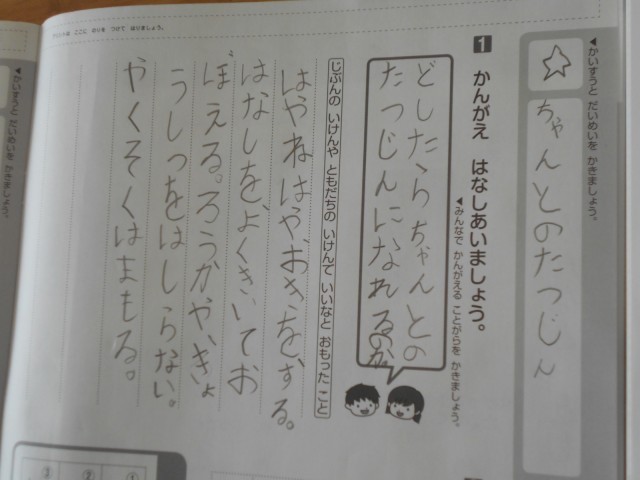 ◀かいすうと だいめいを かきましょう。
☆
ちゃんとのたつじん
1 かんがえ はなしあいましょう。
◀みんなで かんがえる ことがらを かきましょう。
どしたらちゃんとの
たつじんになれるのか
じぶんの いけんや ともだちの いけんで いいなと おもった こと
はやねはやおきをする。
はなしを、よくきいてお
ぼえる。ろうかやいきょ
うしつをはしらない。
やくそくはまもる。
① 
②
③
◀かいすうと だいめいを かきましょう。